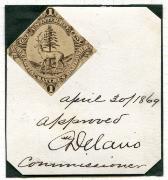 1
1
April 20/1869
approved
C Delano
Commissioner